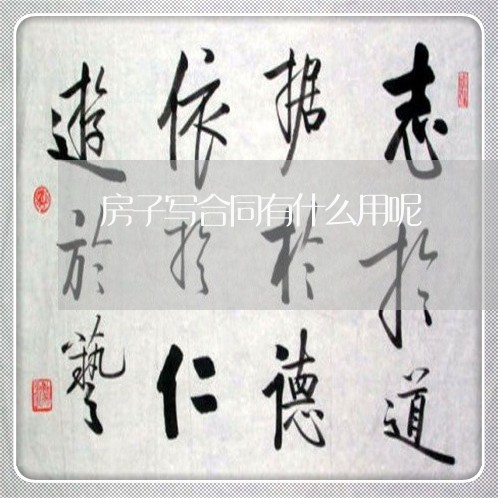 志於道
据於德
依於仁
遊於藝
房子写合同有什么用呢